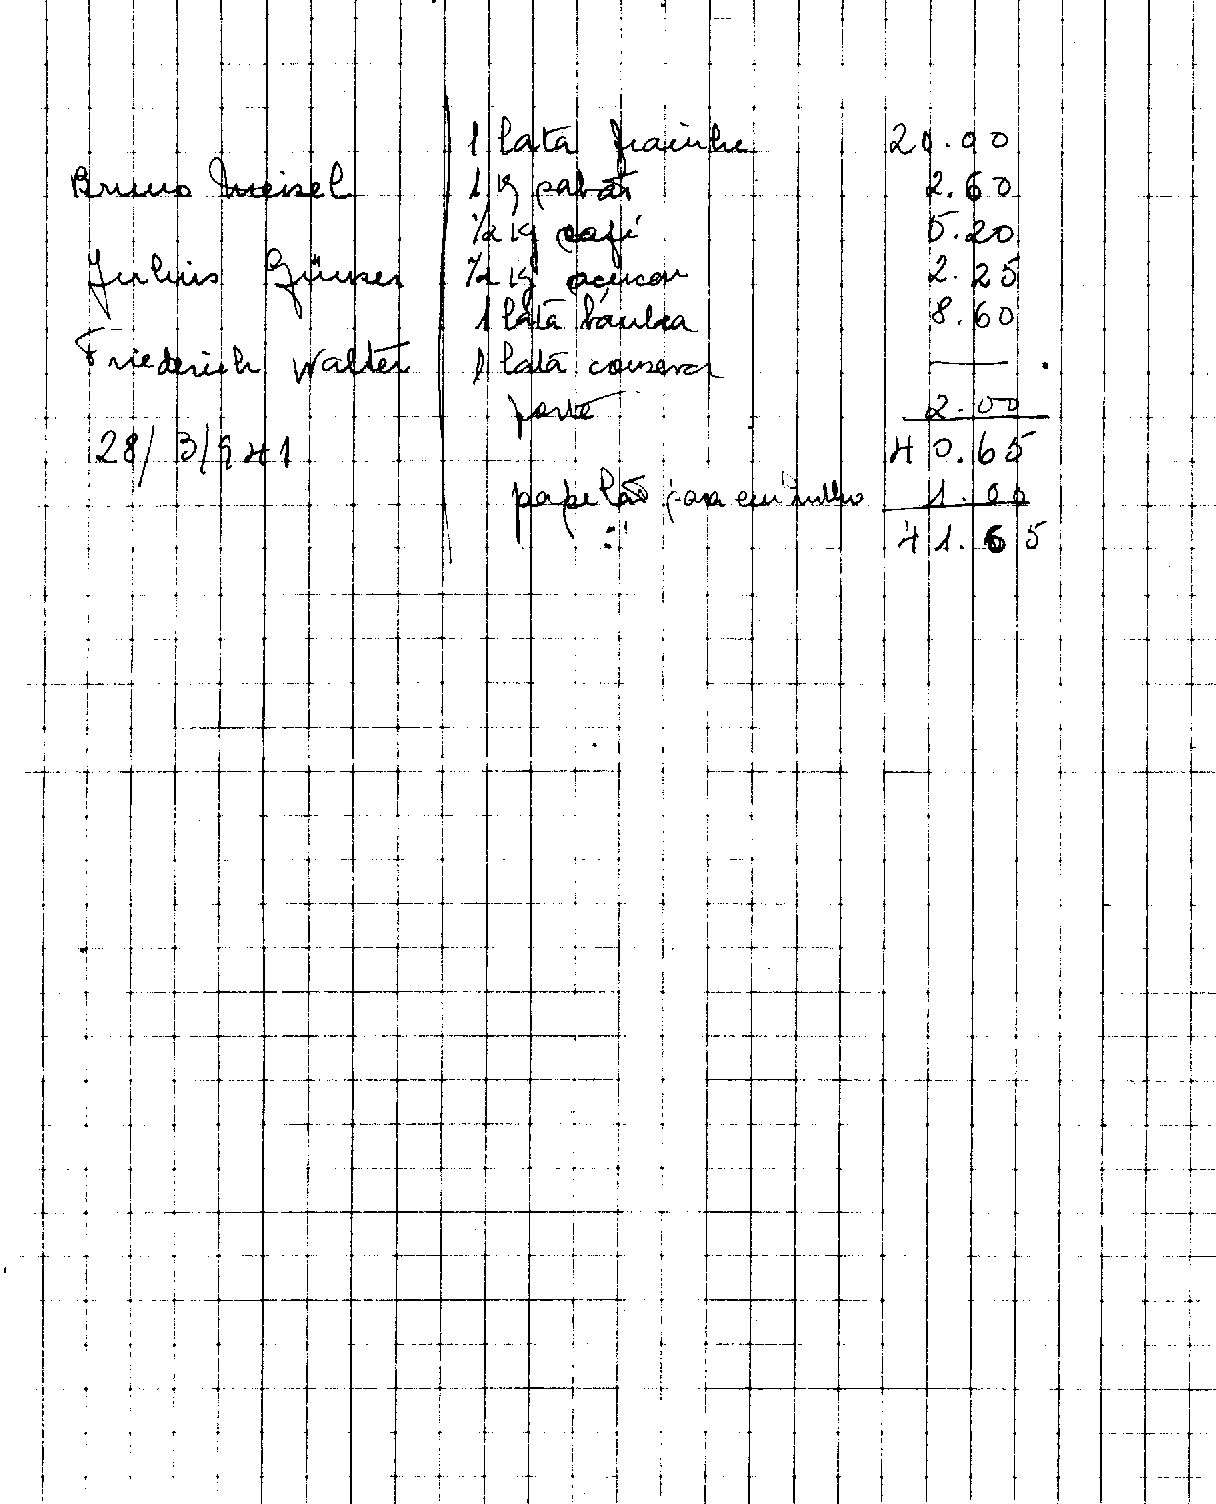 1 lata 20.00
Bruno Meisel 1 kg 2.60
1/2 kg café 5.20
Julius 1/2 kg açucar 2.25
1 lata banha 8.60
Friederich Walter 1 lata conserva —
porte 2.00
28/3/941 40.65
papelão para embrulho 1.00
41.65